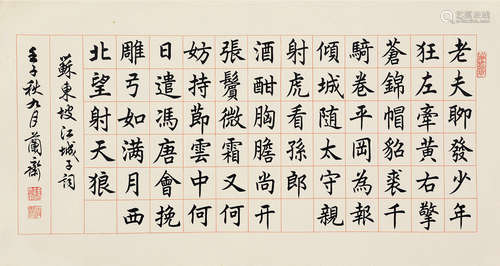 老夫聊發少年
狂左牽黃右擎
蒼錦帽貂裘千
騎卷平岡為報
傾城隨太守親
射虎看孫郎
酒酣胸膽尚開
張鬢微霜又何
妨持節雲中何
日遣馮唐會挽
雕弓如滿月西
北望射天狼
蘇東坡江城子詞
壬子秋九月蘭齋